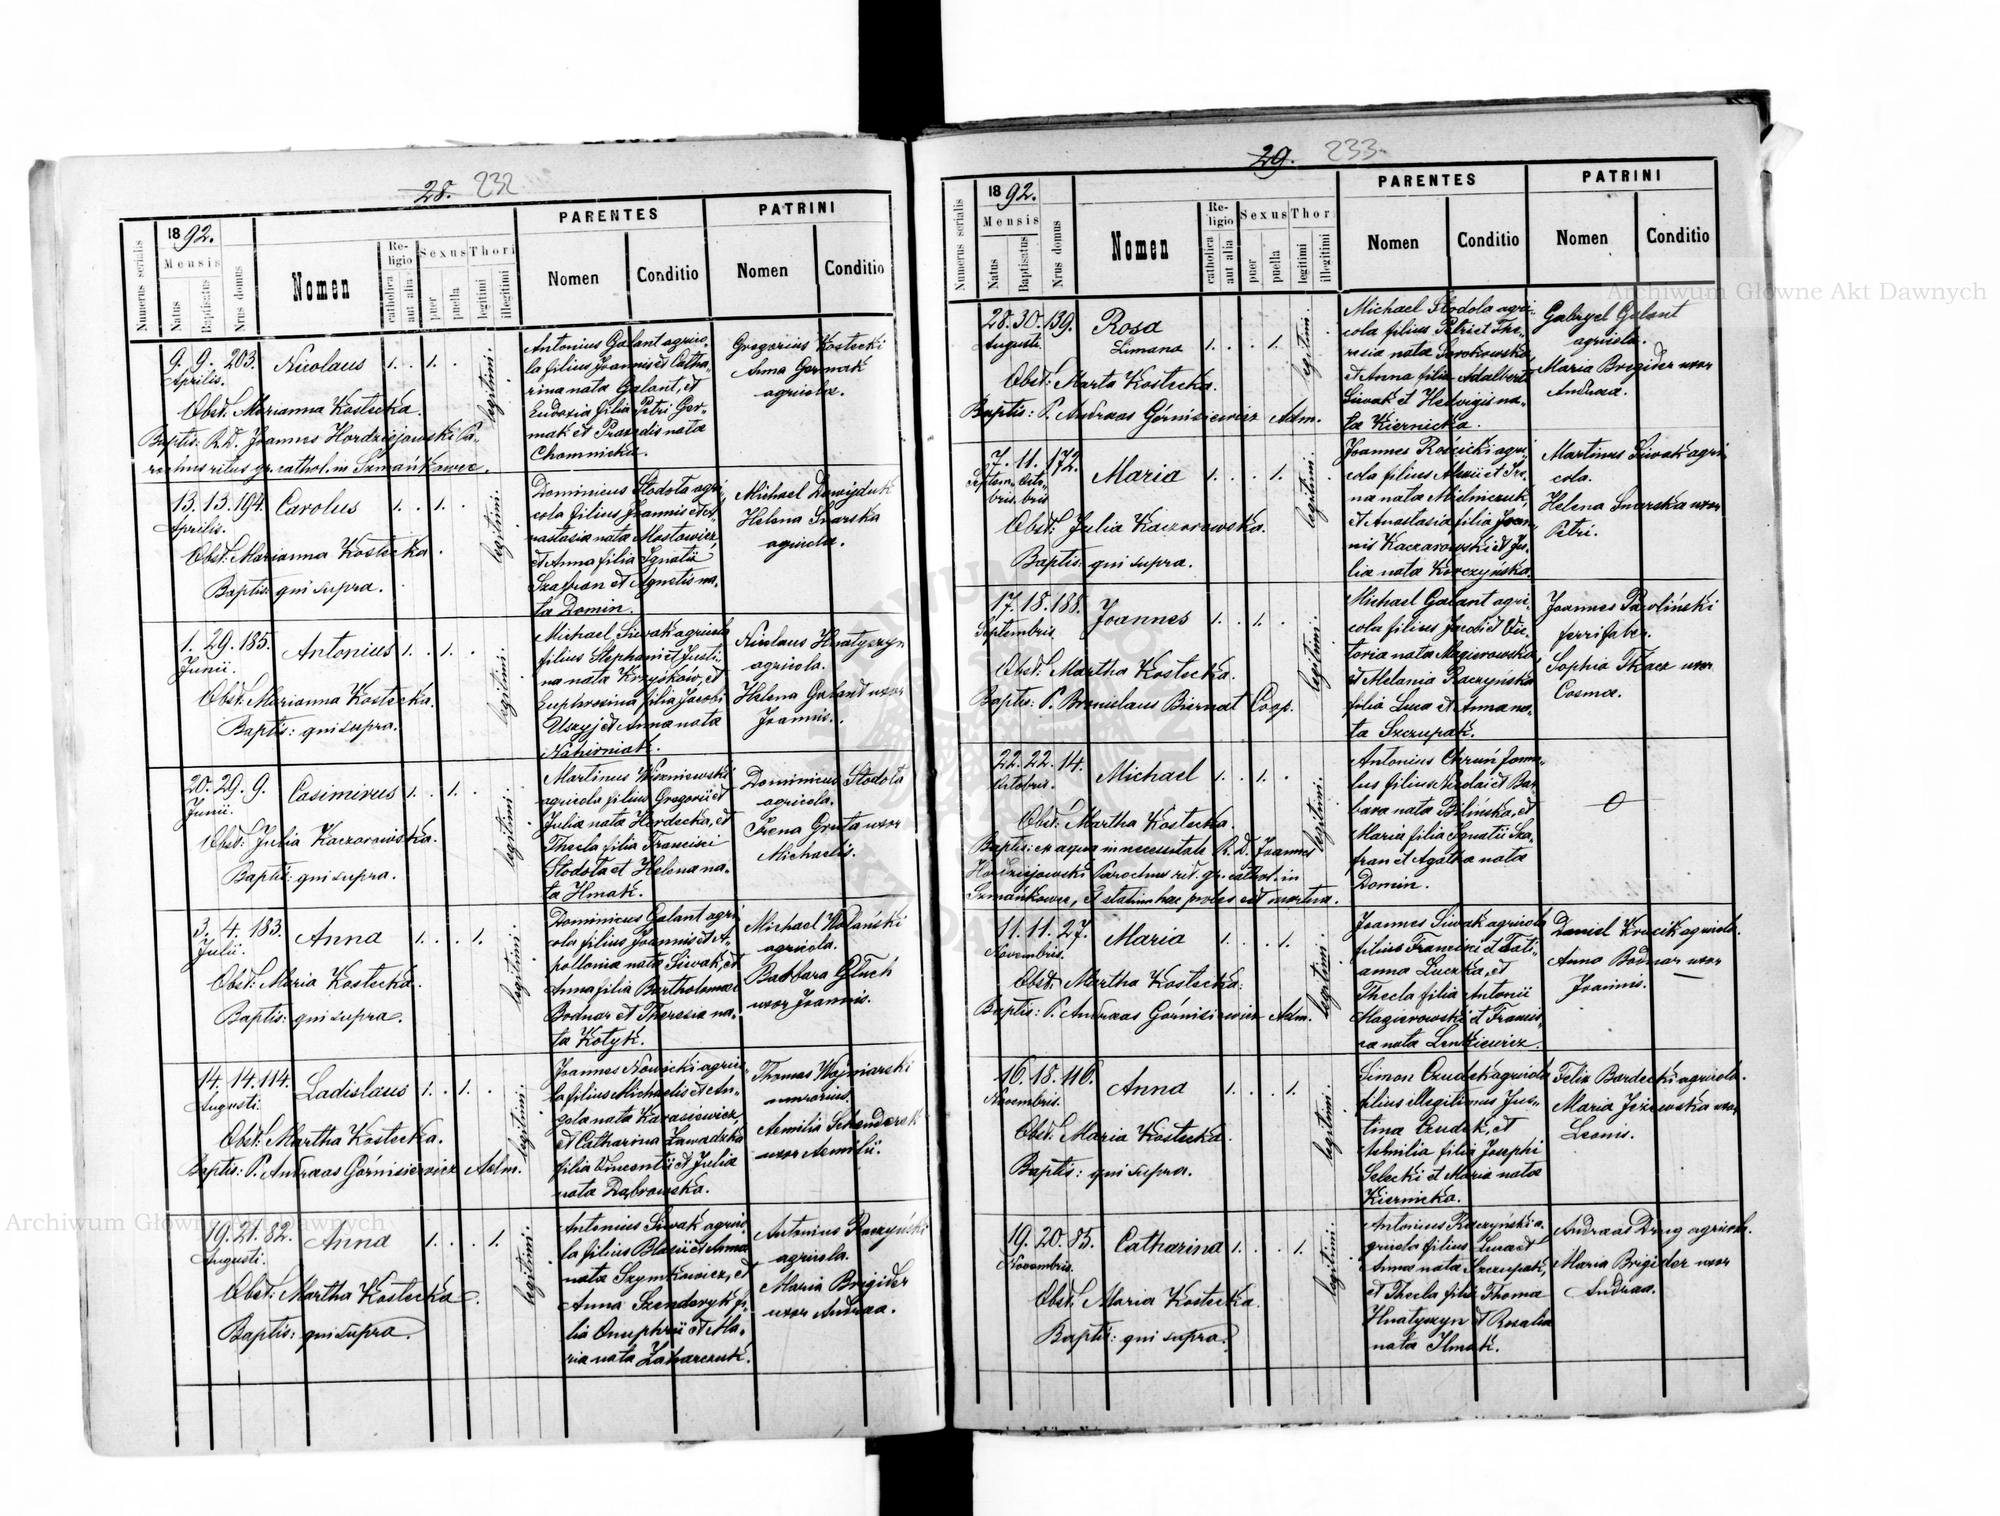 28. 232
1892.
Mensis
Numerus serialis
Natus
Baptisatus
Nrus domus
Nomen
Religio
catholica
aut alia
Sexus
puer
puella
Thori
legitimi
illegitimi
PARENTES
Nomen
Conditio
PATRINI
Nomen
Conditio
9. 9. 203. Nicolaus 1. . 1. . legitimi.
Aprilis.
Obst: Marianna Kostecka.
Baptis: R.D. Joannes Hordziejowski Pa-
rochus ritus gr. cathol. in Szmańkowce.
Antonius Galant agrico-
la filius Joannis et Catha-
rina nata Galant, et
Eudoxia filia Petri Ger-
mak et Praxedis nata
Chomnicka.
Gregorius Kostecki
Anna Germak
agricola.
13. 13. 194. Carolus 1. . 1. . legitimi.
Aprilis.
Obst: Marianna Kostecka.
Baptis: qui supra.
Dominicus Stodola agri-
cola filius Joannis et A-
nastasia nata Mostowicz,
et Anna filia Ignatii
Szafran et Agnetis na-
ta Domin.
Michael Dawijduk
Helena Snarska
agricola.
1. 29. 185. Antonius 1. . 1. . legitimi.
Junii.
Obst: Marianna Kostecka.
Baptis: qui supra.
Michael Siwak agricola
filius Stephani et Justi-
na nata Krzyskow, et
Euphrosina filia Jacobi
Uszyj et Anna nata
Nahirniak.
Nicolaus Hnatyszyn
agricola.
Helena Galand uxor
Joannis.
20. 29. 9. Casimirus 1. . 1. . legitimi.
Junii.
Obst: Julia Kaczorowska.
Baptis: qui supra.
Martinus Wiszniewski
agricola filius Gregorii et
Julia nata Herdecka, et
Thecla filia Francisci
Stodola et Helena na-
ta Hmak.
Dominicus Stodola
agricola.
Irena Gruta uxor
Michaelis.
3. 4. 183. Anna 1. . . 1. legitimi.
Julii.
Obst: Maria Kostecka.
Baptis: qui supra.
Dominicus Galant agri-
cola filius Joannis et A-
pollonia nata Siwak, et
Anna filia Bartholomaei
Bodnar et Theresia na-
ta Kotyk.
Michael Wolański
agricola.
Barbara Gluch
uxor Joannis.
14. 14. 114. Ladislaus 1. . 1. . legitimi.
Augusti.
Obst: Martha Kostecka.
Baptis: P. Andreas Górnisiewicz Adm.
Joannes Nowicki agrico-
la filius Michaelis et An-
gela nata Karasiewicz,
et Catharina Zawadzka
filia Vincentii et Julia
nata Dąbrowska.
Thomas Wojniarski
Aemilia Schenderek
uxor Aemilii.
19. 21. 82. Anna 1. . . 1. legitimi.
Augusti.
Obst: Martha Kostecka.
Baptis: qui supra.
Antonius Siwak agrico-
la filius Blasii et Anna
nata Szymkowicz, et
Anna Szenderyk fi-
lia Onuphrii et Ma-
ria nata Zaharczuk.
Antonius Raczyński
agricola.
Maria Brigider
uxor Andreae.
29. 233.
1892.
Mensis
Numerus serialis
Natus
Baptisatus
Nrus domus
Nomen
Religio
catholica
aut alia
Sexus
puer
puella
Thori
legitimi
illegitimi
PARENTES
Nomen
Conditio
PATRINI
Nomen
Conditio
28. 30. 139. Rosa 1. . . 1. legitimi.
Augusti. Limana
Obst: Marta Kostecka.
Baptis: P. Andreas Górnisiewicz Adm.
Michael Stodola agri-
cola filius Petri et The-
resia nata Sorokowska,
et Anna filia Adalberti
Siwak et Hedvigis na-
ta Kiernicka.
Gabryel Galant
agricola.
Maria Brigider uxor
Andreae.
7. 11. 172. Maria 1. . . 1. legitimi.
Septem- Octo-
bris. bris
Obst: Julia Kaczorowska.
Baptis: qui supra.
Joannes Rościcki agri-
cola filius Alexii et Ire-
na nata Mielniczuk,
et Anastasia filia Joan-
nis Kaczarowski et Ju-
lia nata Korczyńska.
Martinus Siwak agri-
cola.
Helena Snarska uxor
Petri.
17. 18. 188. Joannes 1. . 1. . legitimi.
Septembris.
Obst: Martha Kostecka.
Baptis: P. Bronislaus Biernat Coop.
Michael Galant agri-
cola filius Jacobi et Vic-
toria nata Magierowska,
et Melania Raczynska
filia Luca et Anna na-
ta Szczupak.
Joannes Pawliński
ferrifaber.
Sophia Tkacz uxor
Cosma.
22. 22. 14. Michael 1. . 1. . legitimi.
Octobris.
Obst: Martha Kostecka.
Baptis: ex aqua in necessitate R. D. Joannes
Hordziejowski Parochus rit. gr. cathol. in
Szmańkowce, et statim haec proles est mortua.
Antonius Chruń famu-
lus filius Nicolai et Bar-
bara nata Bilińska, et
Maria filia Ignatii Sza-
fran et Agatha nata
Domin.
0
11. 11. 27. Maria 1. . . 1. legitimi.
Novembris.
Obst: Martha Kostecka.
Baptis: P. Andreas Górnisiewicz Adm.
Joannes Siwak agricola
filius Francisci et Tati-
anna Luczka, et
Thecla filia Antonii
Magierowski et Francis-
ca nata Lenkiewicz.
Daniel Krucik agricola.
Anna Bodnar uxor
Joannis.
16. 18. 116. Anna 1. . . 1. legitimi.
Novembris.
Obst: Maria Kostecka.
Baptis: qui supra.
Simon Czudek agricola
filius illegitimus Jus-
tina Czudek, et
Aemilia filia Josephi
Selecki et Maria nata
Kiernicka.
Felix Bardecki agricola.
Maria Jeżewska uxor
Leonis.
19. 20. 85. Catharina 1. . . 1. legitimi.
Novembris.
Obst: Maria Kostecka.
Baptis: qui supra.
Antonius Raczyński a-
gricola filius Luca et
Anna nata Szczupak,
et Thecla filia Thoma
Hnatyszyn et Rosalia
nata Ilmak.
Andreas Drug agricola.
Maria Brigider uxor
Andreae.
Archiwum Główne Akt Dawnych
Archiwum Główne Akt Dawnych